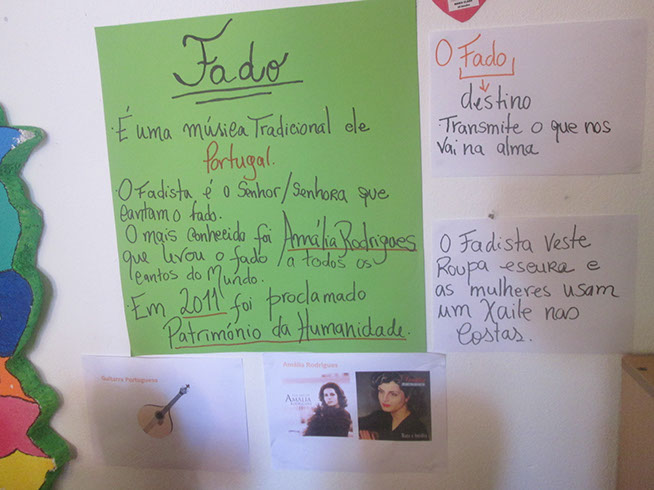 Fado
É uma música Tradicional de
Portugal.
O Fadista é o Senhor/Senhora que
cantam o fado.
O mais conhecido foi Amália Rodrigues
que levou o fado a todos os
cantos do Mundo.
Em 2011 foi proclamado
Património da Humanidade.
O Fado,
destino
Transmite o que nos
vai na alma
O Fadista veste
Roupa escura e
as mulheres usam
um Xaile nas
Costas.
Guitarra Portuguesa
Amália Rodrigues
AMALIA